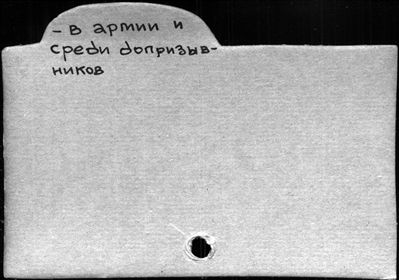 - в армии и
среди допризыв-
ников